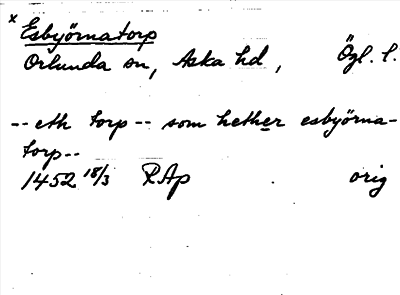 x Esbyörnatorp
Orlunda sn, Aska hd, Ögl. l.
-- eth torp -- som hether esbyörna-
torp --
1452 18/3 RAp orig